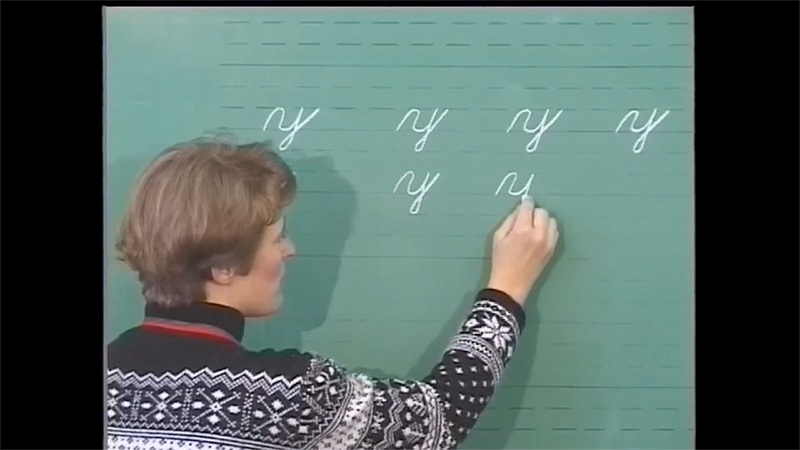 y y y y
y y